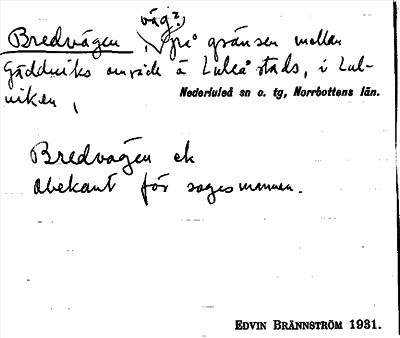 väg?
Bredvägen, på gränsen mellan
Gäddviks område å Luleå stads, i Lul-
viken,
Nederluleå sn o. tg, Norrbottens län.
Bredvägen ek
obekant för sagesmannen.
EDVIN BRÄNNSTRÖM 1931.